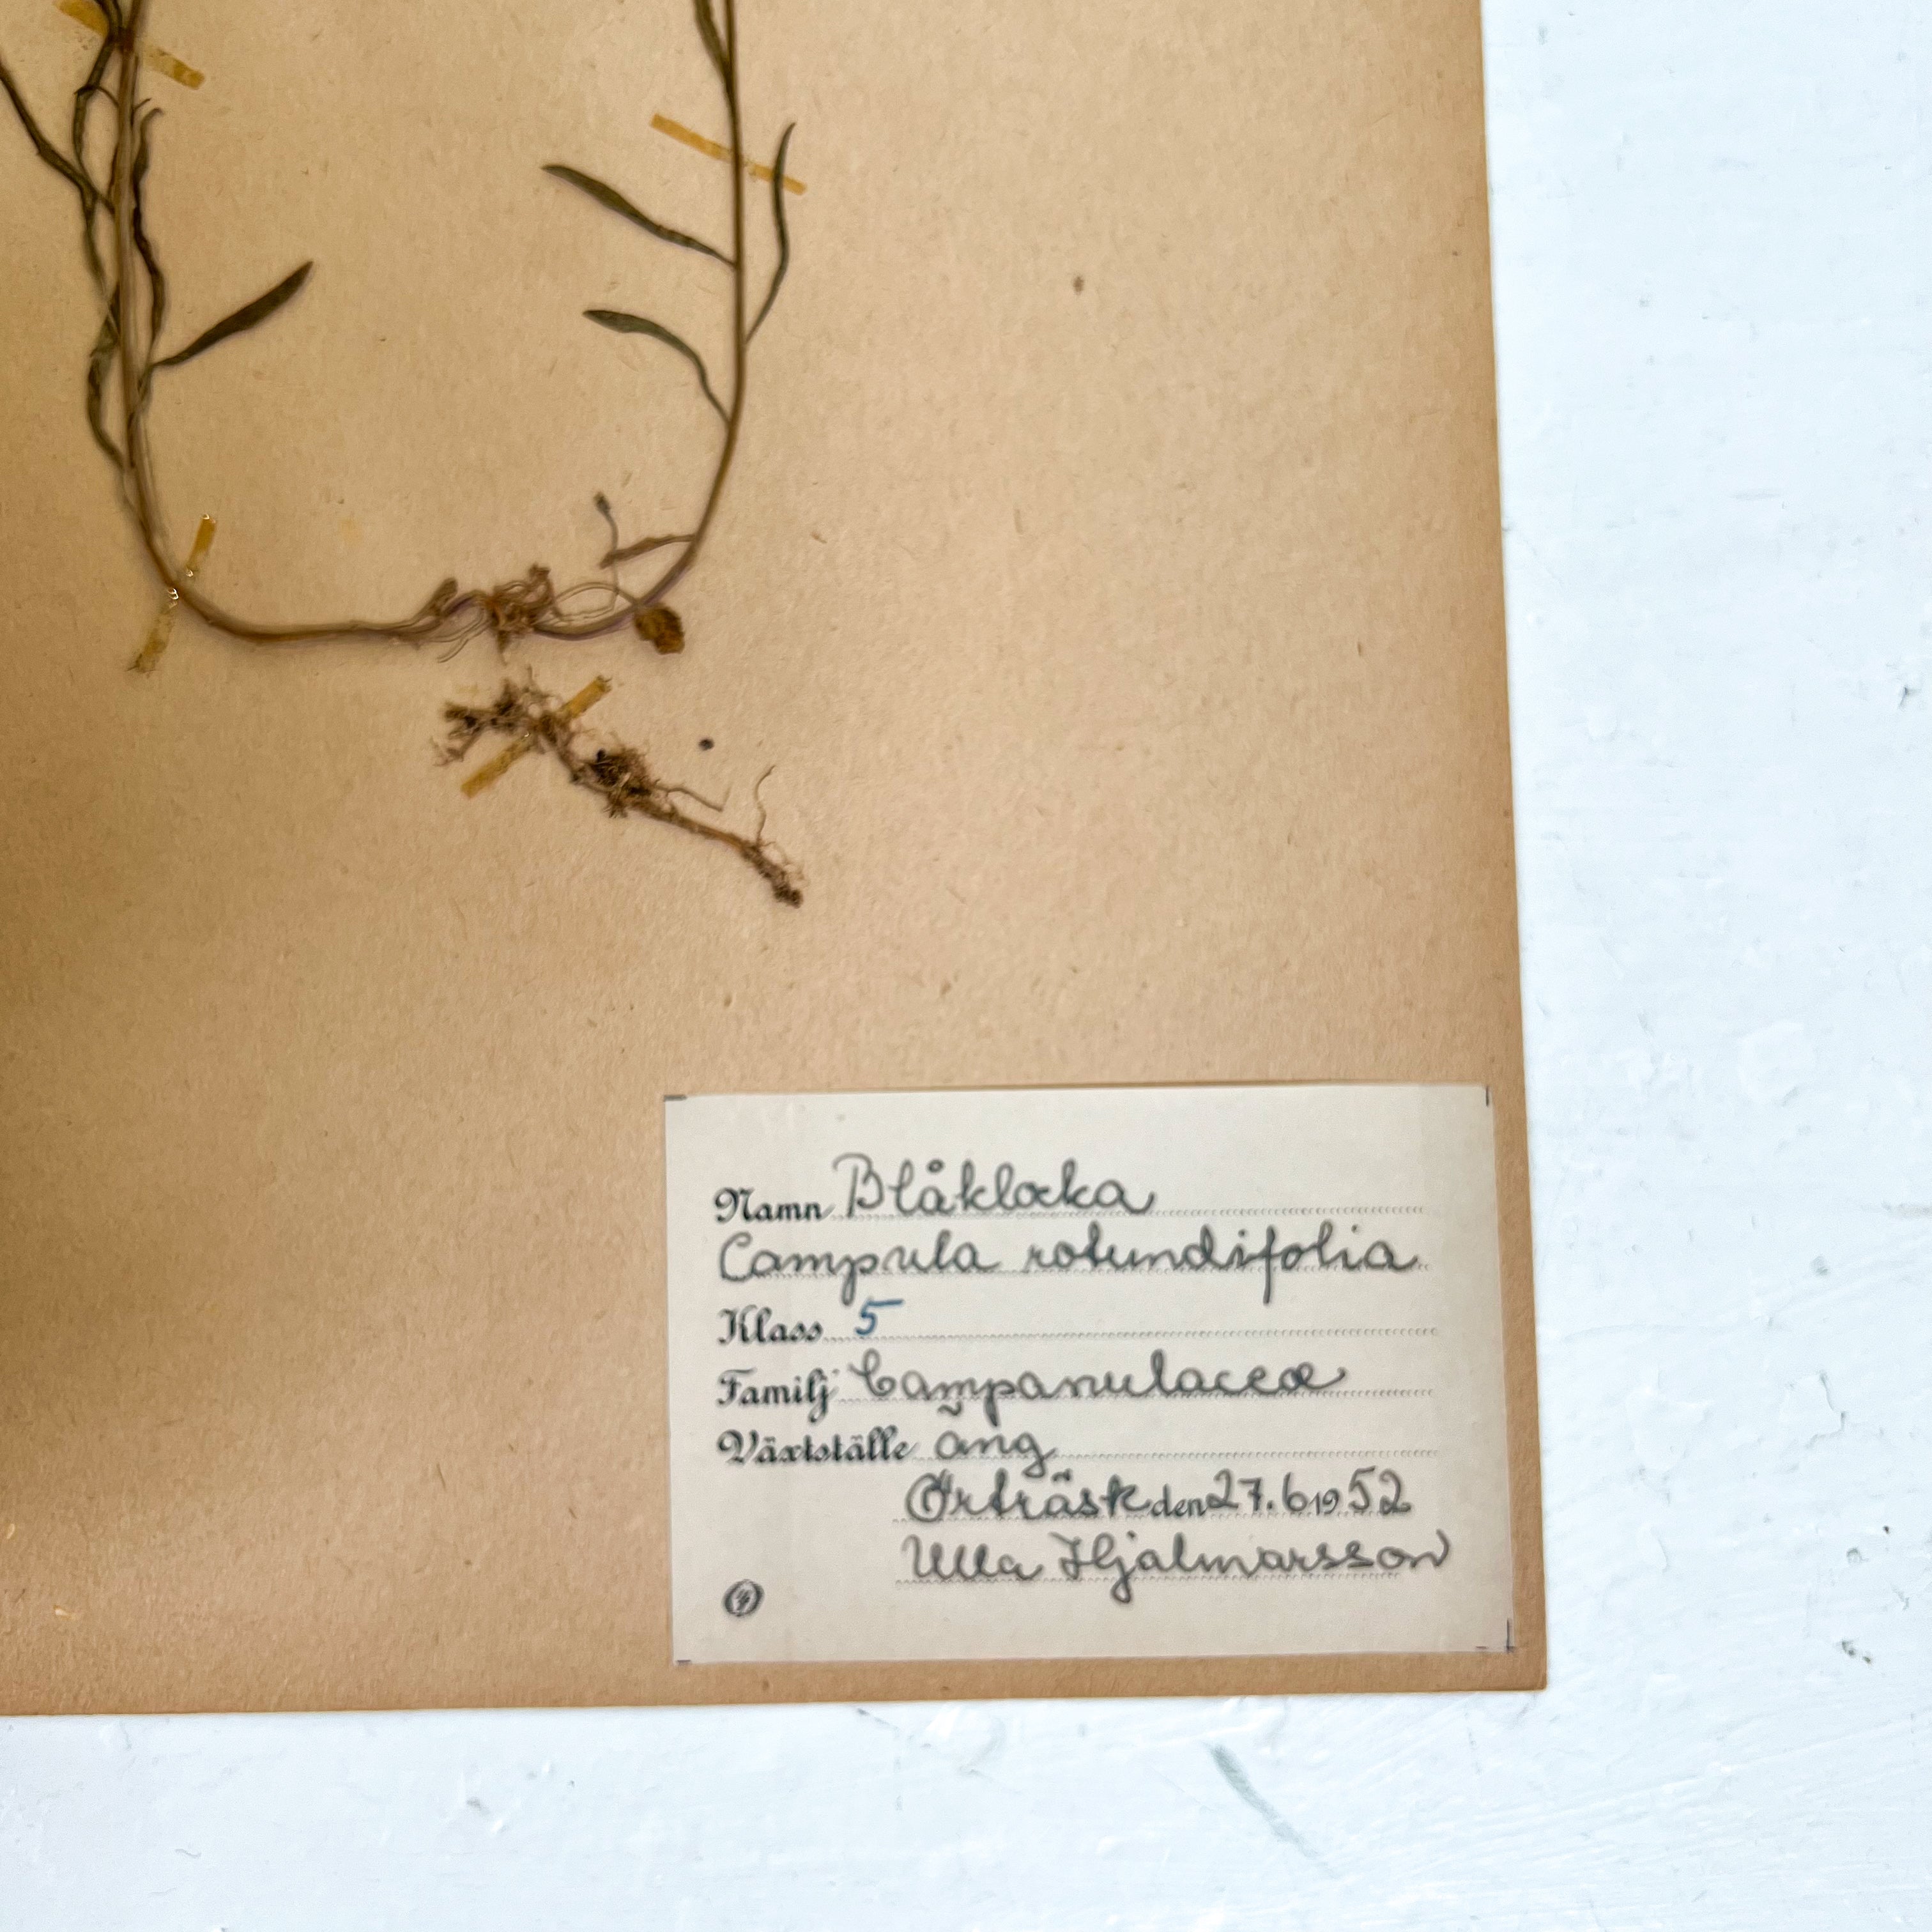 Namn Blåklocka
Campula rotundifolia
Klass 5
Familj Campanulaceæ
Växtställe äng
Örträsk den 27.6 1952
Ulla Hjalmarsson